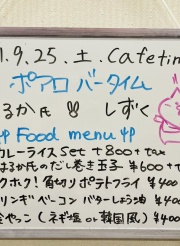 1.9.25.土.Cafetim
ポアロ バータイム
るか氏 しずく
Food menu
カレーライスSet ¥800+tax
はるか氏のだし巻き玉子 ¥600+t
クホク!角切りポテトフライ ¥400
リンギベーコン バターしょう油 ¥400
やっこ(ネギ塩or韓国風) ¥400